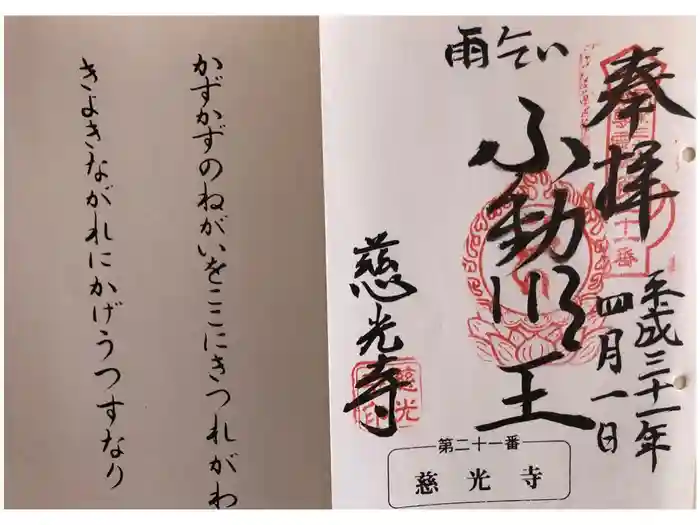 奉拝
平成三十一年
四月一日
雨乞い
ふ動明王
慈光寺
慈光
印
十一番
第二十一番
慈光寺
かずかずのねがいをここにきつれがわ
きよきながれにかげうつすなり